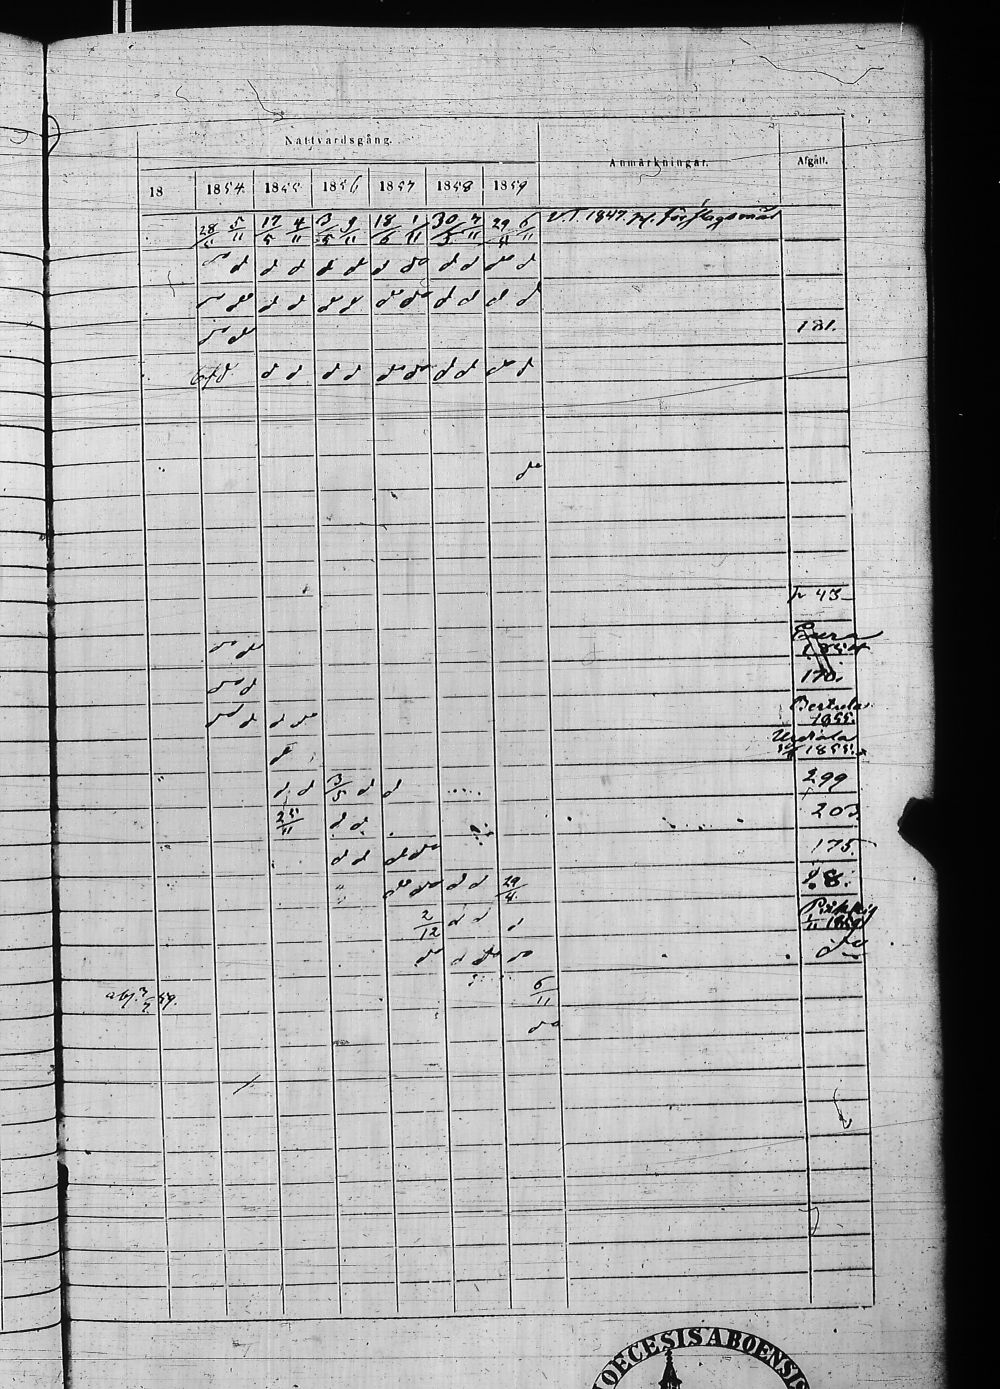 Nattvardsgång.
Anmärkningar.
Afgått.
18 1854 1855 1856 1857 1858 1859
28/5 5/11 17/5 4/11 3/5 9/11 18/6 1/11 30/5 7/11 29/4 6/11 1847
do d d d d d d do d d do d
do do d d do d do do d d d d
do do 181.
d d d d d d do do d d do d
do
p 43
do do Eura
do d 170.
do d d do 1855.
d Urdiala 1855.
d d 3/5 d d 299
25/11 d d 203.
d d d do 175.
do do d d 29/4 8.
2/12 d d d 1/11 1859
do d do do do
abs. 3/5 59. 6/11
do
DIOECESIS ABOENSIS